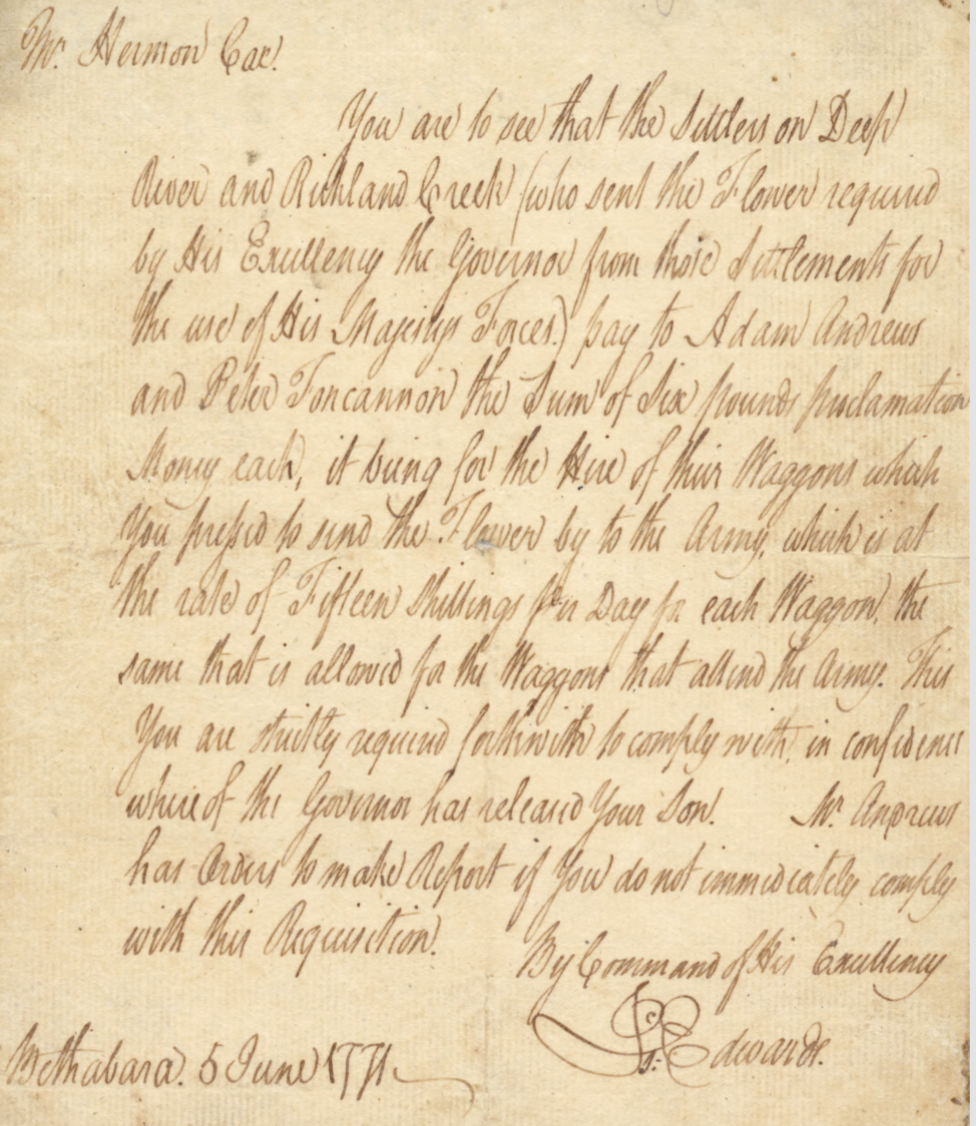 Mr. Hermon Cox.
You are to see that the Settlers on Deep
River and Richland Creek (who sent the Flower required
by His Excellency the Governor from those Settlements for
the use of His Majestys Forces.) pay to Adam Andrews
and Peter Foncannon the Sum of Six pounds proclamation
Money each, it being for the Hire of their Waggons which
You pressed to send the Flower by to the Army, which is at
the rate of Fifteen Shillings per Day for each Waggon, the
same that is allowed for the Waggons that attend the Army. This
You are strictly required forthwith to comply with, in confidence
whereof the Governor has released Your Son. Mr. Andrews
has Orders to make Report if You do not immediately comply
with this Requisition.
By Command of His Excellency
Is. Edwards.
Bethabara. 5 June 1771.